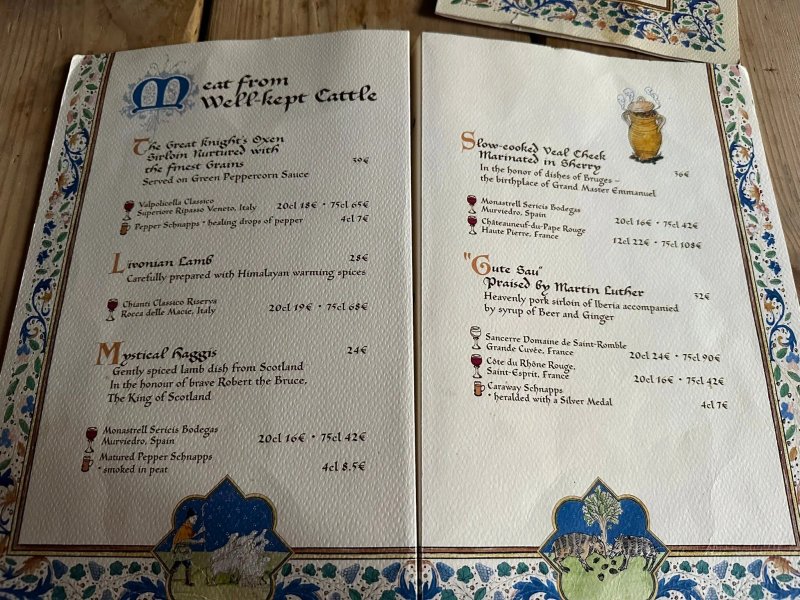 Meat from
Well-kept Cattle
The Great Knight's Oxen
Sirloin Nurtured with
the Finest Grains
39€
Served on Green Peppercorn Sauce
Valpolicella Classico
Superiore Ripasso Veneto, Italy 20cl 18€ • 75cl 65€
Pepper Schnapps • healing drops of pepper 4cl 7€
Livonian Lamb 28€
Carefully prepared with Himalayan warming spices
Chianti Classico Riserva
Rocca delle Macie, Italy 20cl 19€ • 75cl 68€
Mystical Haggis 24€
Gently spiced lamb dish from Scotland
In the honour of brave Robert the Bruce,
The King of Scotland
Monastrell Sericis Bodegas
Murviedro, Spain 20cl 16€ • 75cl 42€
Matured Pepper Schnapps
• smoked in peat 4cl 8.5€
Slow-cooked Veal Cheek
Marinated in Sherry 36€
In the honor of dishes of Bruges –
the birthplace of Grand Master Emmanuel
Monastrell Sericis Bodegas
Murviedro, Spain 20cl 16€ • 75cl 42€
Châteauneuf-du-Pape Rouge
Haute Pierre, France 12cl 22€ • 75cl 108€
"Gute Sau"
Praised by Martin Luther 32€
Heavenly pork sirloin of Iberia accompanied
by syrup of Beer and Ginger
Sancerre Domaine de Saint-Romble
Grande Cuvée, France 20cl 24€ • 75cl 90€
Côte du Rhône Rouge,
Saint-Esprit, France 20cl 16€ • 75cl 42€
Caraway Schnapps
• heralded with a Silver Medal 4cl 7€